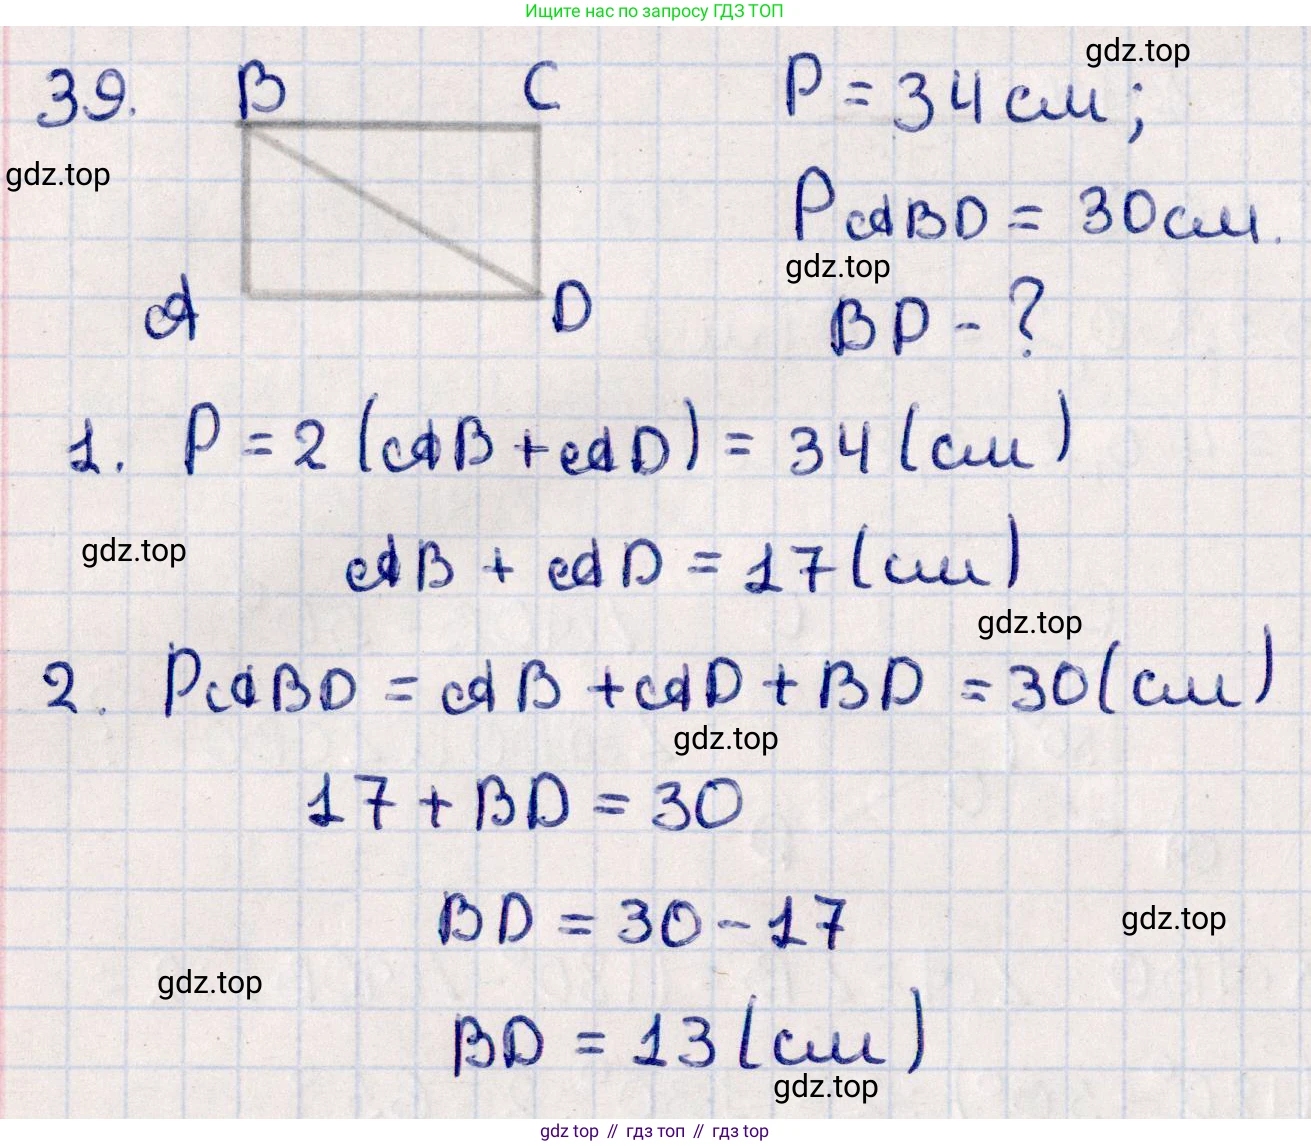 Ищите нас по запросу ГДЗ ТОП
39. B C P = 34 см;
gdz.top
gdz.top
P ABD = 30 см.
gdz.top
A D BD - ?
1. P = 2 (AB + AD) = 34 (см)
gdz.top
AB + AD = 17 (см)
gdz.top
2. P ABD = AB + AD + BD = 30 (см)
gdz.top
17 + BD = 30
BD = 30 - 17
gdz.top
gdz.top
BD = 13 (см)
gdz.top
gdz top // гдз топ // gdz top